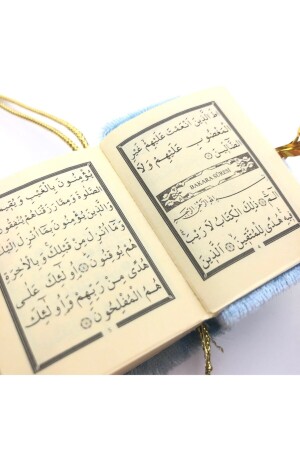 طَ الَّذِينَ اَنْعَمْتَ عَلَيْهِمْ غَيْرِ
الْمَغْضُوبِ عَلَيْهِمْ وَلَا
الضَّٓالِّينَ
BAKARA SÛRESİ
بِسْمِ اللّٰهِ الرَّحْمٰنِ الرَّحِيمِ
الٓمٓ ذٰلِكَ الْكِتَابُ لَا رَيْبَ
فِيهِ هُدًى لِلْمُتَّقِينَ الَّذِينَ
يُؤْمِنُونَ بِالْغَيْبِ وَيُقِيمُونَ
الصَّلٰوةَ وَمِمَّا رَزَقْنَاهُمْ يُنْفِقُونَ
وَالَّذِينَ يُؤْمِنُونَ بِمَٓا اُنْزِلَ اِلَيْكَ
وَمَٓا اُنْزِلَ مِنْ قَبْلِكَ وَبِالْاٰخِرَةِ
هُمْ يُوقِنُونَ اُو۬لٰٓئِكَ عَلٰى
هُدًى مِنْ رَبِّهِمْ وَاُو۬لٰٓئِكَ
هُمُ الْمُفْلِحُونَ